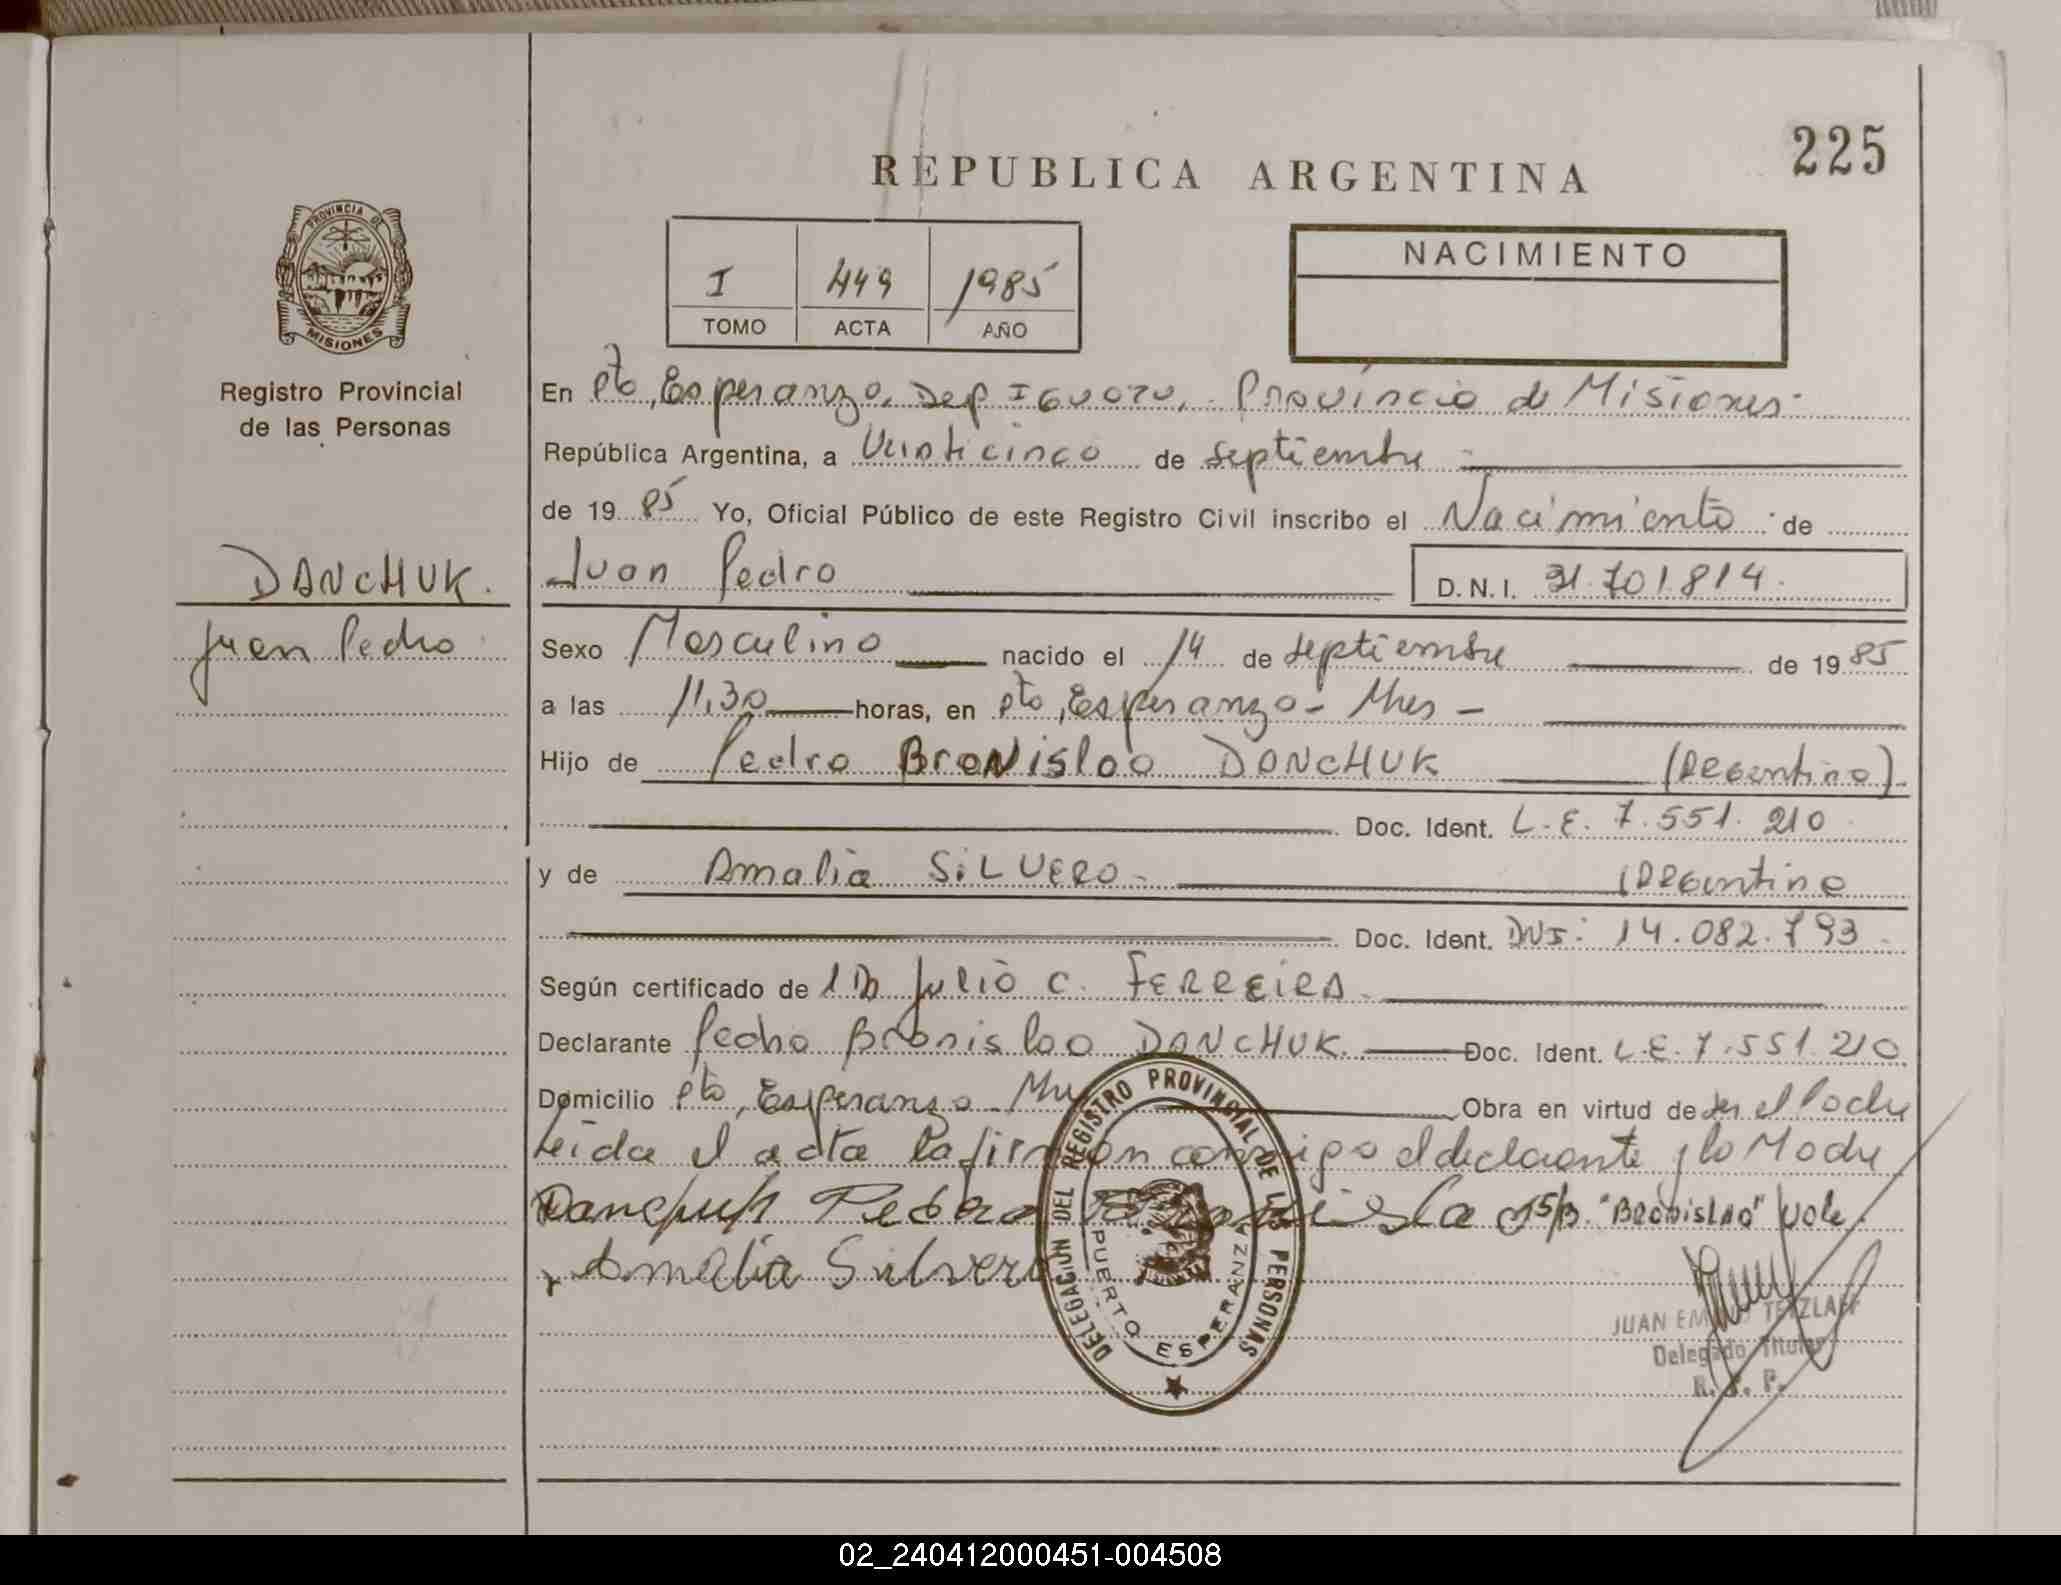 225
REPUBLICA ARGENTINA
PROVINCIA DE
MISIONES
I 449 1985
TOMO ACTA AÑO
NACIMIENTO
Registro Provincial
de las Personas
En Pto, Esperanza, Dep IGUAZU, - Provincia de Misiones-
República Argentina, a Veinticinco de septiembre
de 19 85 Yo, Oficial Público de este Registro Civil inscribo el Nacimiento de
DANCHUK.
Juan Pedro
Juan Pedro
D.N.I. 31.701.814.
Sexo Masculino nacido el 14 de septiembre de 19 85
a las 11,30 horas, en Pto, Esperanza - Mnes -
Hijo de Pedro Bronislao DANCHUK (Argentino)
Doc. Ident. L.E. 7.551.210
y de Amalia SILVERO - (Argentina
Doc. Ident. DNI: 14.082.793
Según certificado de Julio C. FERREIRA
Declarante Pedro Bronislao DANCHUK. Doc. Ident. L.E. 7.551.210
Domicilio Pto, Esperanza - Obra en virtud de ser el Padre
Leida el acta la firman conmigo el declarante y la Madre
Danchuk Pedro S/B. "BRONISLAO" Vale.
Amalia Silvero
DELEGACION DEL REGISTRO PROVINCIAL DE LAS PERSONAS
PUERTO ESPERANZA
JUAN TETZLAFF
Delegado Titular
R. P. P.
02_240412000451-004508